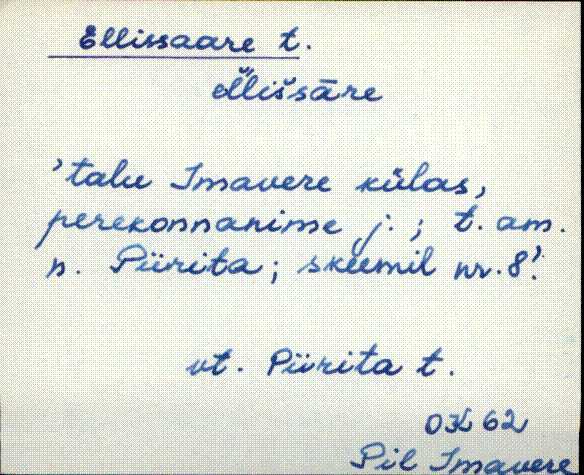 Ellissaare t.
èl̆lišsāre
'talu Imavere külas,
perekonnanime j.; t. am.
n. Piirita; skeemil nr. 8'.
vt. Piirita t.
62
Pil Imavere